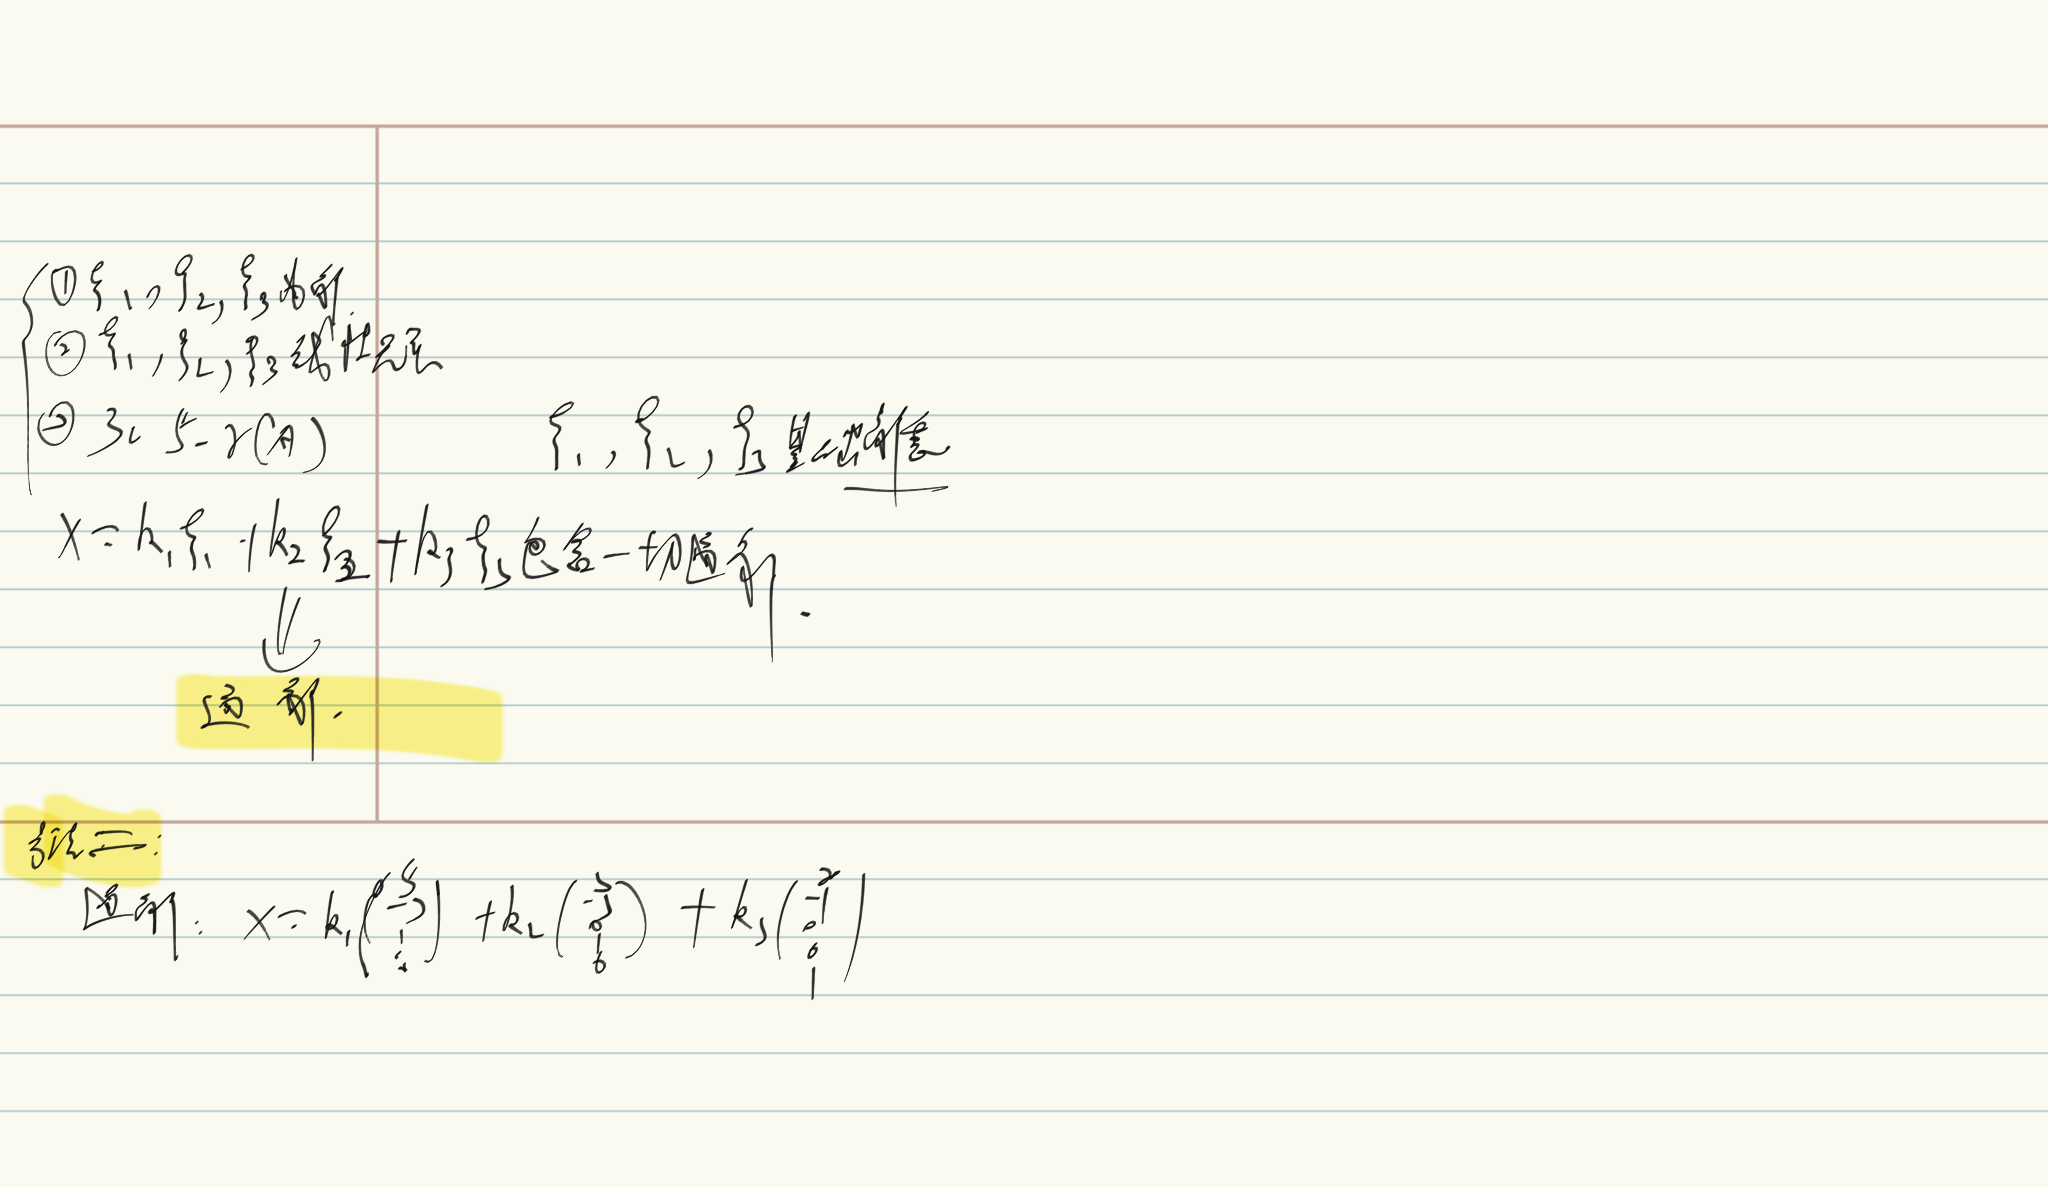 ① ξ₁, ξ₂, ξ₃ 为解.
② ξ₁, ξ₂, ξ₃ 线性无关
③ 3 = 5 - r(A)
ξ₁, ξ₂, ξ₃ 是基础解系
X = k₁ξ₁ + k₂ξ₂ + k₃ξ₃ 包含一切通解.
通解.
法二:
通解: X = k₁ + k₂ + k₃ (2 -1 0 0 1)